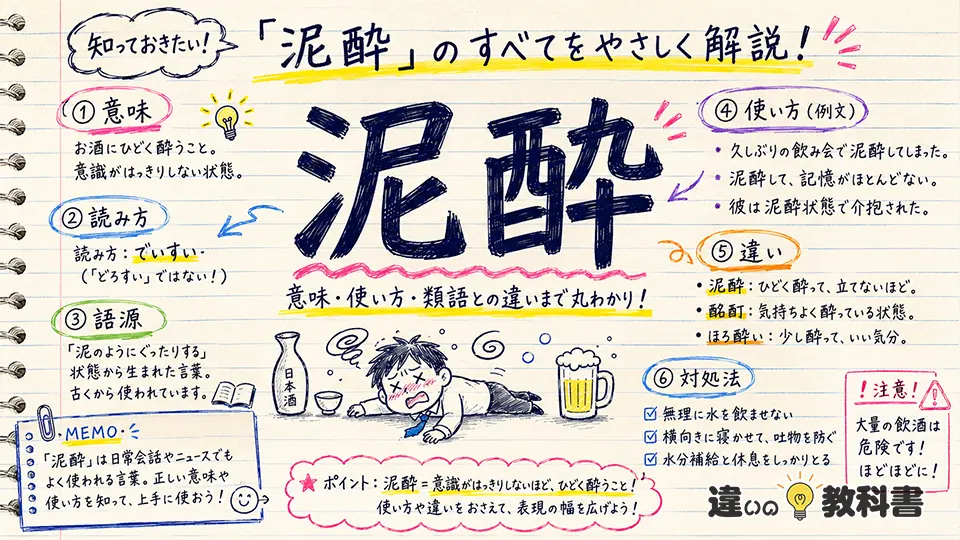 知っておきたい！
「泥酔」のすべてをやさしく解説！
① 意味
お酒にひどく酔うこと。
意識がはっきりしない状態。
② 読み方
読み方：でいすい
（「どろすい」ではない！）
③ 語源
「泥のようにぐったりする」
状態から生まれた言葉。
古くから使われています。
MEMO
「泥酔」は日常会話やニュースでも
よく使われる言葉。正しい意味や
使い方を知って、上手に使おう！
泥酔
意味・使い方・類語との違いまで丸わかり！
日本酒
★ ポイント：泥酔＝意識がはっきりしないほど、ひどく酔うこと！
使い方や違いをおさえて、表現の幅を広げよう！
④ 使い方（例文）
・久しぶりの飲み会で泥酔してしまった。
・泥酔して、記憶がほとんどない。
・彼は泥酔状態で介抱された。
⑤ 違い
・泥酔：ひどく酔って、立てないほど。
・酩酊：気持ちよく酔っている状態。
・ほろ酔い：少し酔って、いい気分。
⑥ 対処法
☑ 無理に水を飲ませない
☑ 横向きに寝かせて、吐物を防ぐ
☑ 水分補給と休息をしっかりとる
！注意！
大量の飲酒は
危険です！
ほどほどに！
違いの教科書